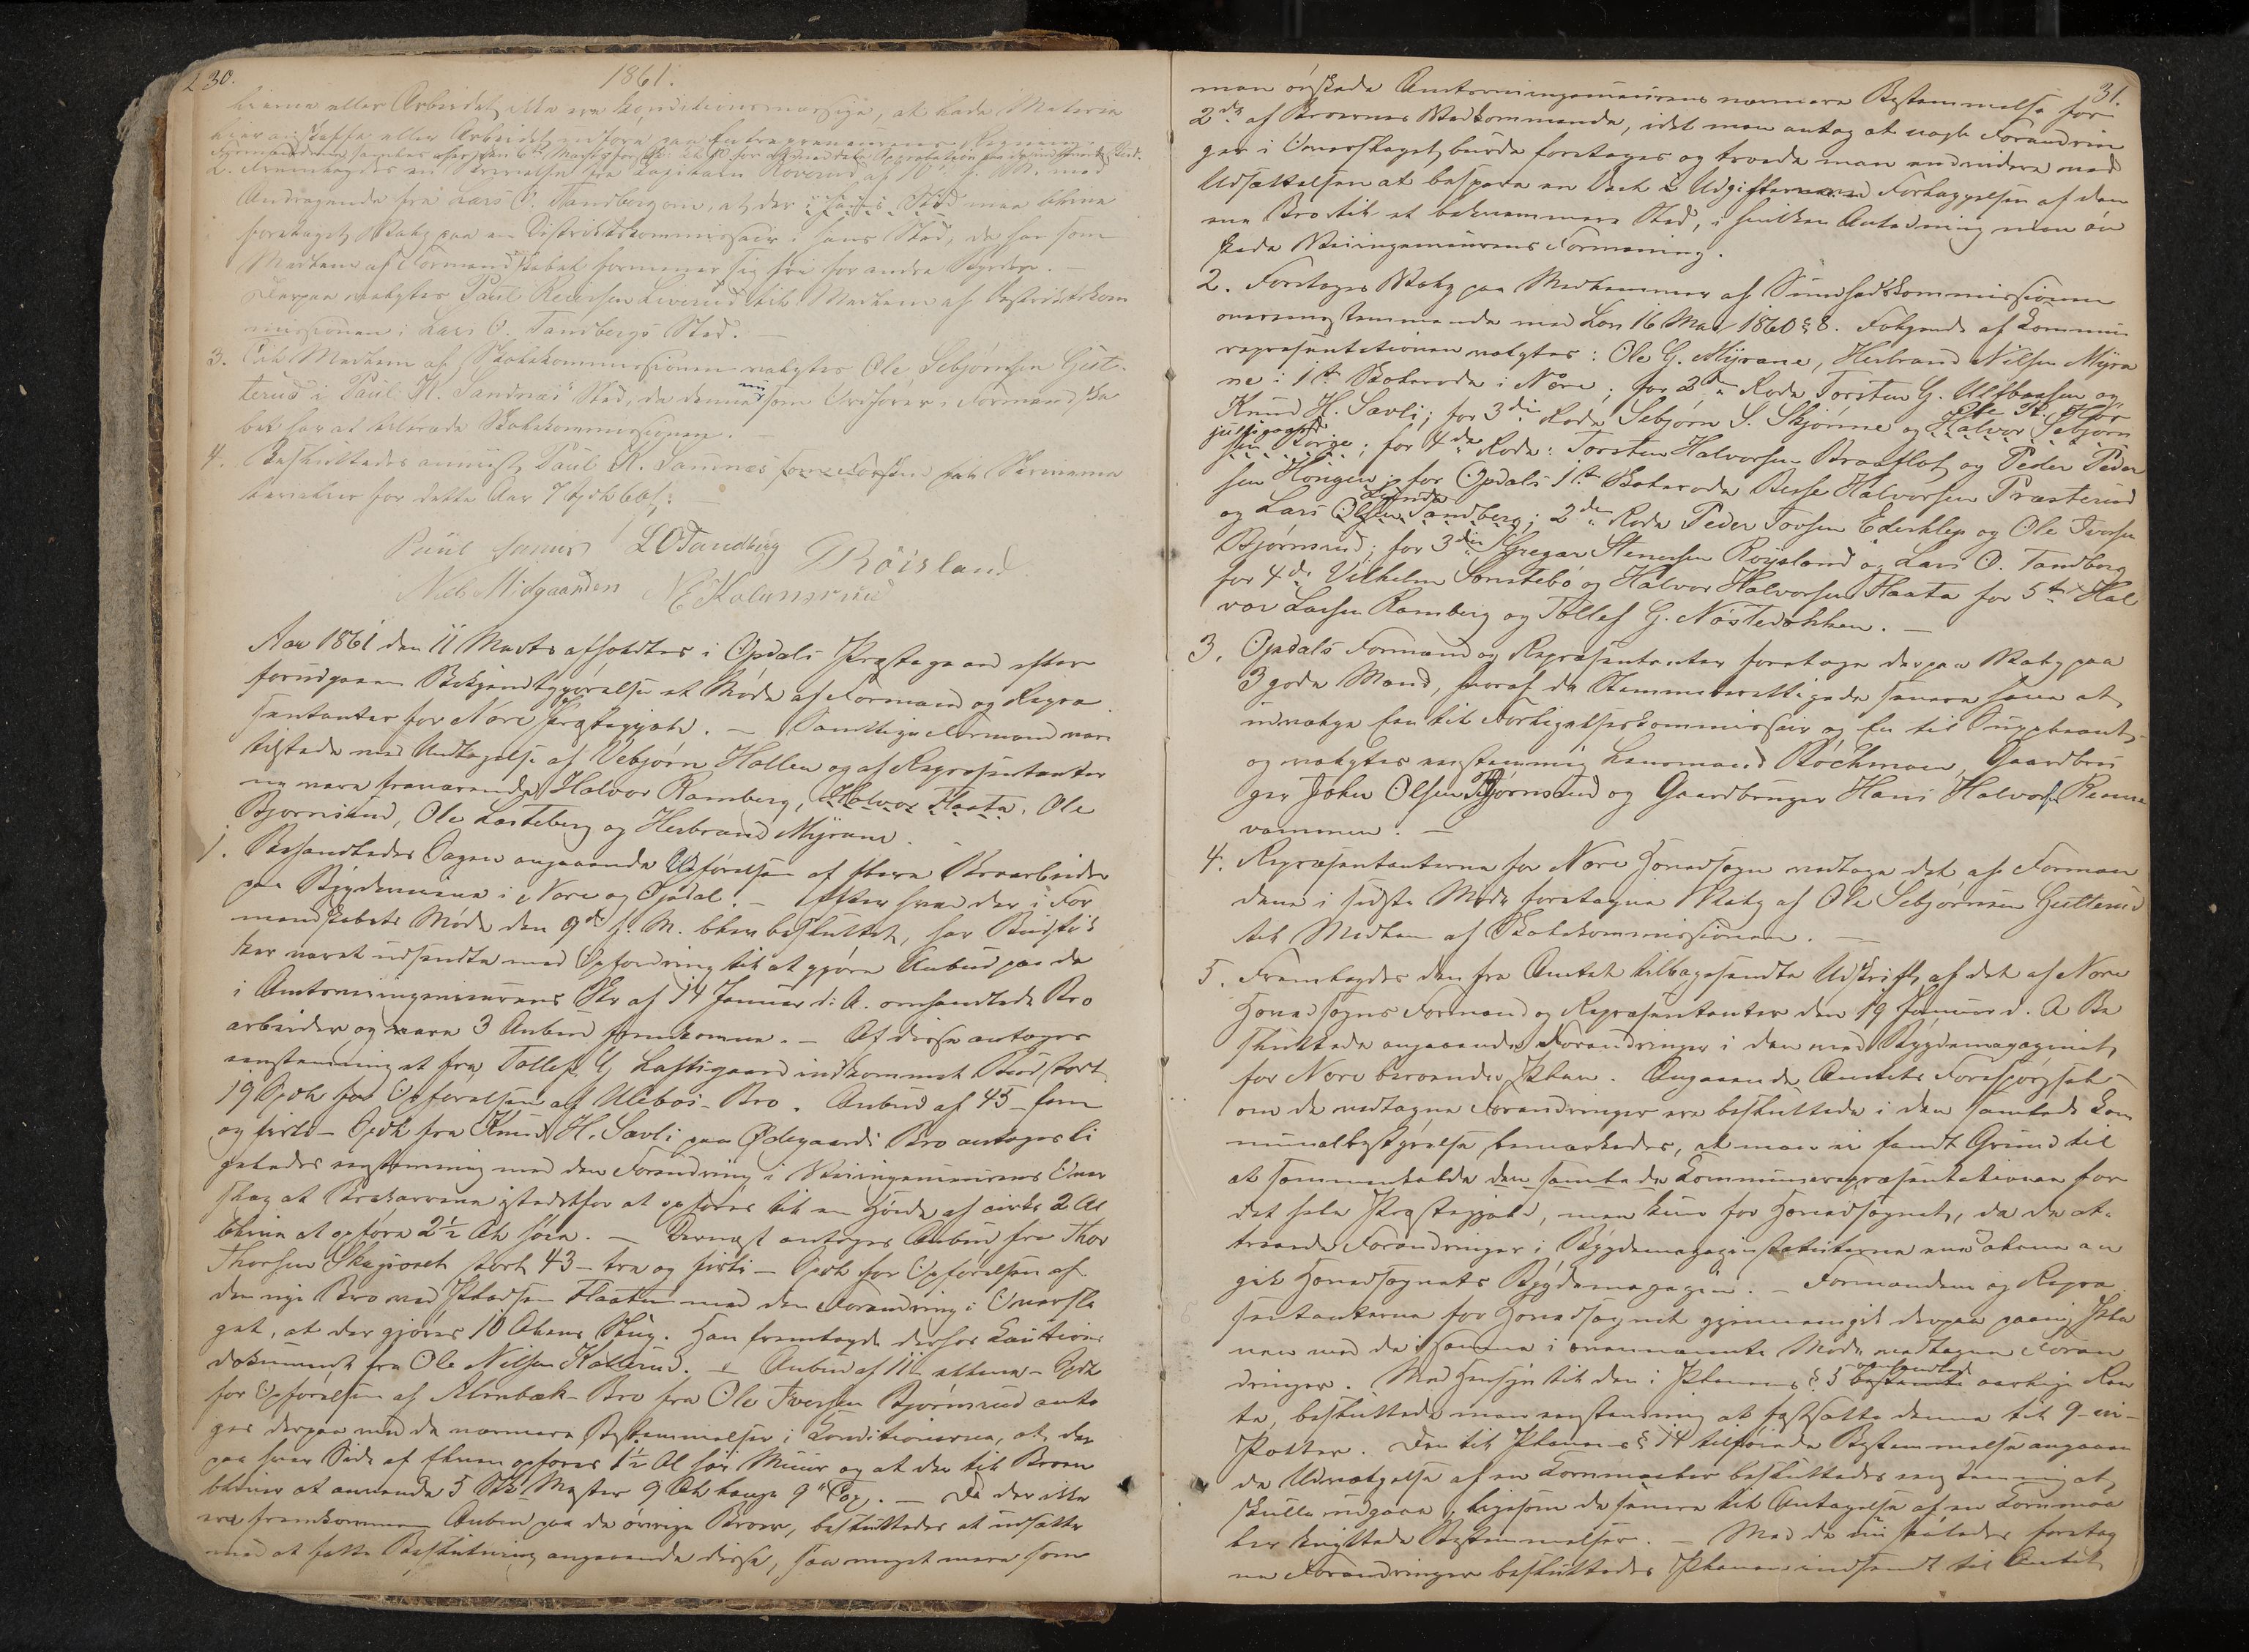 230.
1861.
hierne eller Arbeidet ikke ere konditionsmæssige, at lade Materia
lier anskaffe eller Arbeidet udføre paa Entrepreneurens Regning.
2. Fremlagdes en Skrivelse fra Kapitain Roverud af 10 f. M. med
Andragende fra Lars O. Tandberg om, at der i hans Sted maa blive
foretaget Valg paa en Distriktskommissair i hans Sted, da han som
Medlem af Formandskabet formener sig fri for andre Byrder. —
Derpaa valgtes Paul Reiersen Liverud til Medlem af Distriktskom
missionen i Lars O. Tandbergs Sted. —
3. Til Medlem af Skolekommissionen valgtes Ole Sebjørnsen Gut-
terud i Paul K. Sandnæs Sted, da denne nu som Ordfører i Formandska
bet har at tiltræde Skolekommissionen. —
4. Besluttedes anviist Paul K. Sandnæs som Forskud paa Skrivema
terialier for dette Aar 7 Spdlr 60 s.
Paul Sannes LOTandberg TRöisland
Niels Midgaarden NEKolunsrud
Aar 1861 den 11 Marts afholdtes i Opdals Præstegaard efter
forudgaaen Bekjendtgjørelse et Møde af Formænd og Repræ
sentanter for Nore Præstegjeld. — Samtlige Formænd vare
tilstede med Undtagelse af Vebjørn Hallen og af Repræsentanter
ne vare fraværende Halvor Ramberg, Halvor Flaata, Ole
Bjørnsrud, Ole Lasteberg og Herbrand Myrane. —
1. Behandledes Sagen angaaende Udførelsen af flere Broarbeider
paa Bygdeveiene i Nore og Opdal. — Efter hvad der i For
mandskabets Møde den 9de f. M. blev besluttet, har Budstik
ker været udsendte med Opfordring til at gjøre Anbud paa de
i Amtsveiingenieurens Skr af 14 Januar d: A. omhandlede Bro
arbeider og vare 3 Anbud fremkomne. — Af disse antoges
eenstemmig et fra Tollef  indkommet Bud stort
19 Spdlr for Opførelsen af Uleboi-Bro. Anbud af 45 – fem
og firti – Spdlr fra Knud H. Sævli paa Ødegaards Bro antoges li
geledes eenstemmig med den Forandring i Veiingenieurens Over
slag at Brokarrene istedetfor at opføres til en Høide af cirka 2 Al
blive at opføre 2½ Al høie. — Dernæst antoges Anbud fra Thor
Thorsen Skagionet stort 43 – tre og firti – Spdlr for Opførelsen af
den nye Bro ved Pladsen Flaaten med den Forandring i Oversla
get, at der gjøres 10 Alens Spæng. Han fremlagde derhos Kautions
dokument fra Ole Nilsen Kallerud. — Anbud af 11 – elleve – Spdlr
for Opførelsen af Almbæk-Bro fra Ole Iversen Bjørnsrud anto
ges derpaa med de nærmere Bestemmelser i Konditionerne, at der
paa hver Side af Elven opføres 1½ Al høi Muur og at der til Broen
bliver at anvende 5 Stk Master 9 Al lange 9" Top. — Da der ikke
ere fremkomne Anbud paa de øvrige Broer, besluttedes at udsætte
med at fatte Beslutning angaaende disse, saa meget mere som
31.
man ønskede Amtsveiingenieurens nærmere Bestemmelse for
2de af Broernes Vedkommende, idet man antog at nogle Forandrin
ger i Overslaget burde foretages og troede man endvidere ved
Udsættelsen at bespare en Deel i Udgifterne ved Forlæggelsen af den
ene Bro til et bekvemmere Sted, i hvilken Anledning man øn
skede Veiingenieurens Formening.
2. Foretoges Valg paa Medlemmer af Sundhedskommissionen
overeensstemmende med Lov 16 Mai 1860 § 8. Følgende af Kommu
repræsentationen valgtes: Ole G. Myrane, Herbrand Nilsen Myra
ne i 1ste Skolerode i Nore; for 2den Rode Torsten G. Ulsbaasen og
Knud H. Sævli; for 3die Rode Sebjørn S. Skjønne og Halvor Sebjørn
sen Borge; for 4de Rode: Torsten Halvorsen Braaflot og Peder Peder
sen Hongen; for Opdals 1ste Skolerode Besse Halvorsen Præsterud
og Lars Olsen Tandberg; 2den Rode Peder Tovsen Ederklep og Ole Iversen
Bjørnsrud; for 3die Gregar Stensen Røysland og Lars O. Tandberg
for 4de Vilhelm Sønstebø og Halvor Halvorsen Flaata for 5te Hal
vor Larsen Ramberg og Tollef G. Nøstedokken. —
3. Opdals Formænd og Repræsentanter foretoge derpaa Valg paa
3 gode Mænd, hvoraf de Stemmeberettigede senere have at
udvælge En til Forligelseskommissair og En til Suppleant,
og valgtes eenstemmig Lensmand Bøchmann, Gaardbru
ger John Olsen Bjørnsrud og Gaardbruger Hans Halvorsen Renne
vammen. —
4. Repræsentanterne for Nore Hovedsogn vedtoge det af Forman
dene i sidste Møde foretagne Valg af Ole Sebjørnsen Gutterud
til Medlem af Skolekommissionen. —
5. Fremlagdes den fra Amtet tilbagesendte Udskrift af det af Nore
Hovedsogns Formænd og Repræsentanter den 19 Januar d. A. Be
sluttede angaaende Forandringer i den ved Bygdemagazinet
for Nore beroende Plan. Angaaende Amtets Forespørgsel
om de vedtagne Forandringer ere besluttede i den samlede Kom
munalbestyrelse, bemærkedes, at man ei fandt Grund til
at sammenkalde den samlede Kommunerepræsentation for
det hele Præstegjeld, men kun for Hovedsognet, da de at-
traaede Forandringer i Bygdemagazinstatuterne ene alene an
gik Hovedsognets Bygdemagazin. — Formændene og Repræ
sentanterne for Hovedsognet gjennemgik derpaa paany Pla
nen med de i samme i ovennævnte Møde vedtagne Foran
dringer. Med Hensyn til den i Planens § 5 bestemte omhandlede aarlige Ren
te, besluttede man eenstemmig at fastsætte denne til 9 – ni –
Potter. Den til Planens § 14 tilføiede Bestemmelse angaaen
de Udvælgelse af en Kornmaaler besluttedes eenstemmig at
skulle udgaae, ligesom de senere til Antagelse af en Kornmaa
ler knyttede Bestemmelser. — Med de nu saaledes foretag
ne Forandringer besluttedes Planen indsendt til Amtet